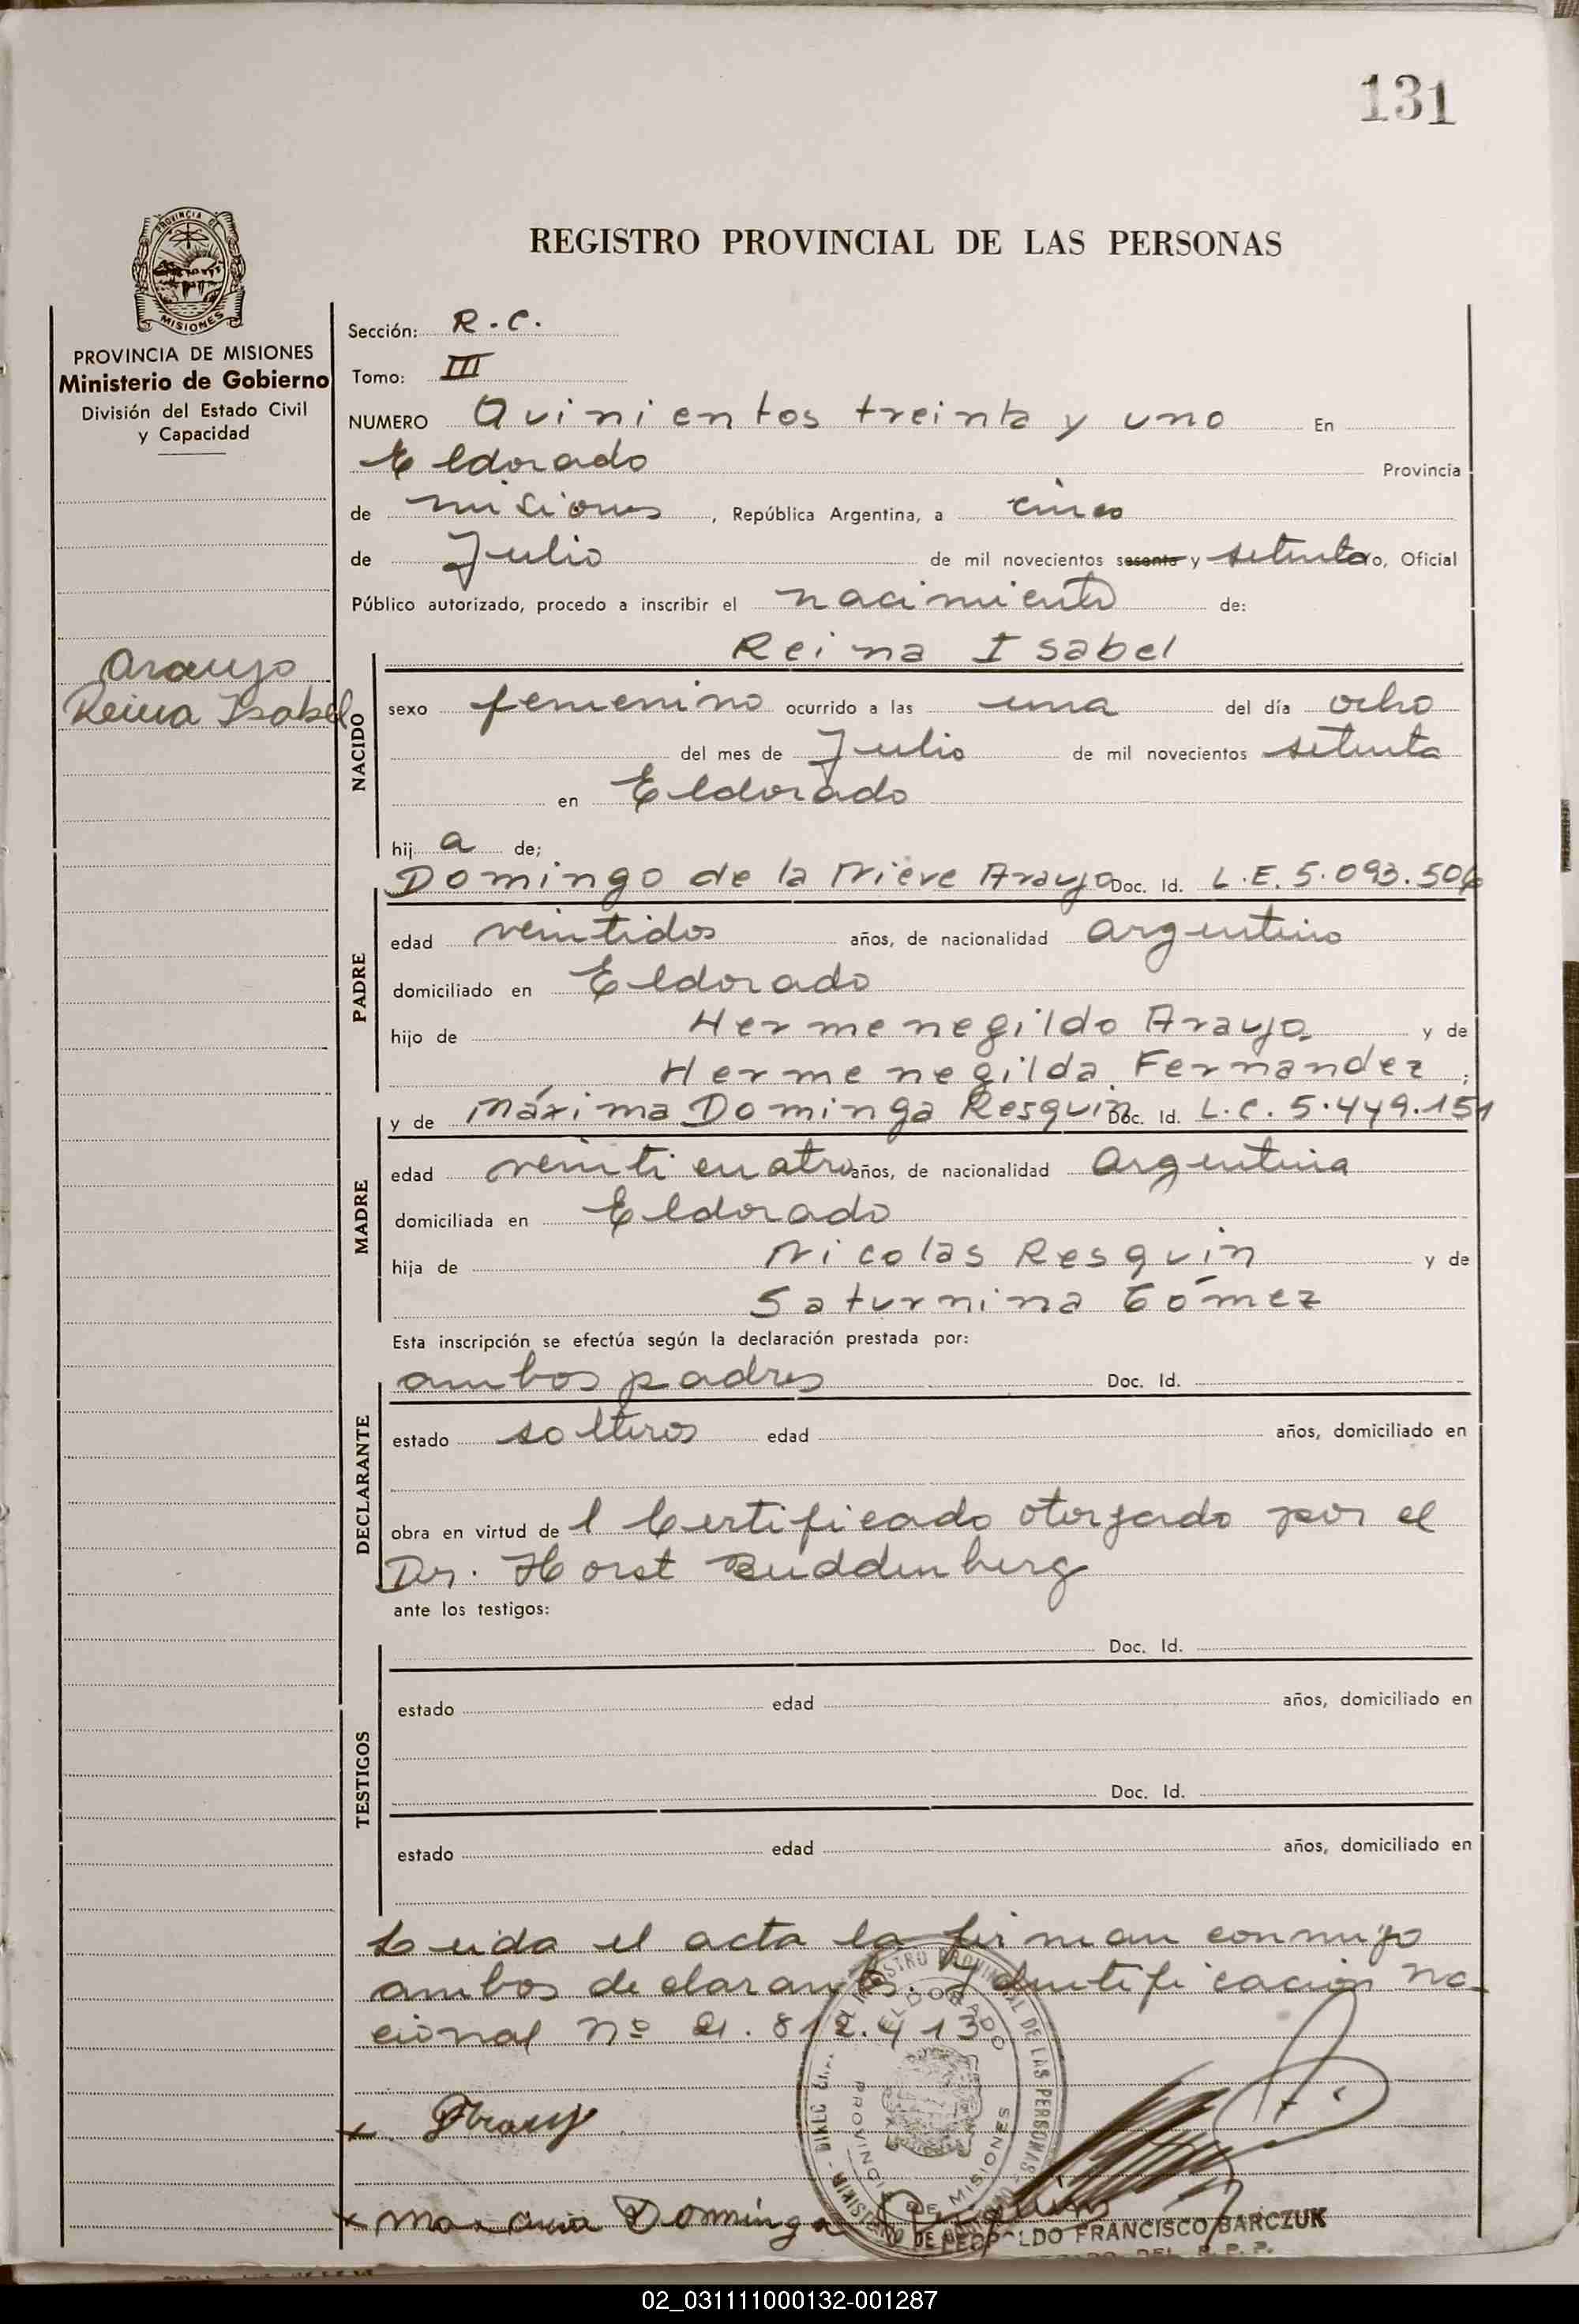 131
PROVINCIA DE
MISIONES
REGISTRO PROVINCIAL DE LAS PERSONAS
PROVINCIA DE MISIONES
Ministerio de Gobierno
División del Estado Civil
y Capacidad
Araujo
Reina Isabel
Sección: R.C.
Tomo: III
NUMERO Quinientos treinta y uno En
Eldorado Provincia
de misiones, República Argentina, a cinco
de Julio de mil novecientos sesenta y setenta yo, Oficial
Público autorizado, procedo a inscribir el nacimiento de:
Reina Isabel
NACIDO
sexo femenino ocurrido a las una del día ocho
del mes de Julio de mil novecientos setenta
en Eldorado
hij a de;
Domingo de la Nieve Araujo Doc. Id. L.E. 5.093.506
PADRE
edad veintidos años, de nacionalidad argentino
domiciliado en Eldorado
hijo de Hermenegildo Araujo y de
Hermenegilda Fernandez ;
y de Máxima Dominga Resquin Doc. Id. L.C. 5.449.151
MADRE
edad veinti cuatro años, de nacionalidad Argentina
domiciliada en Eldorado
hija de Nicolas Resquin y de
Saturnina Gómez
Esta inscripción se efectúa según la declaración prestada por:
ambos padres Doc. Id.
DECLARANTE
estado solteros edad años, domiciliado en
obra en virtud de l Certificado otorgado por el
Dr. Horst Buddenberg
ante los testigos:
Doc. Id.
TESTIGOS
estado edad años, domiciliado en
Doc. Id.
estado edad años, domiciliado en
Leida el acta la firman conmigo
ambos declarantes. Identificación na-
cional nº 21.812.413
ELDORADO
PROVINCIA DE MISIONES
x Araujo
x Maxima Dominga Resquin
LEOPOLDO FRANCISCO BARCZUK
DEL R.P.P.
02_031111000132-001287